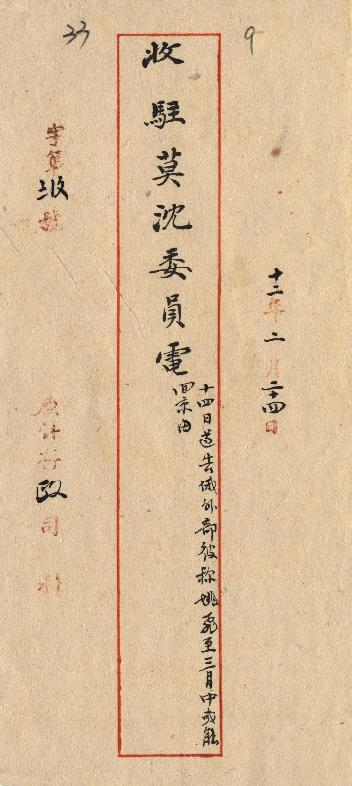 9
十二年二月二十四日
收駐莫沈委員電
十四日道告俄外部彼稱姚飛至三月中或能
回京由
33
字第 號
政司